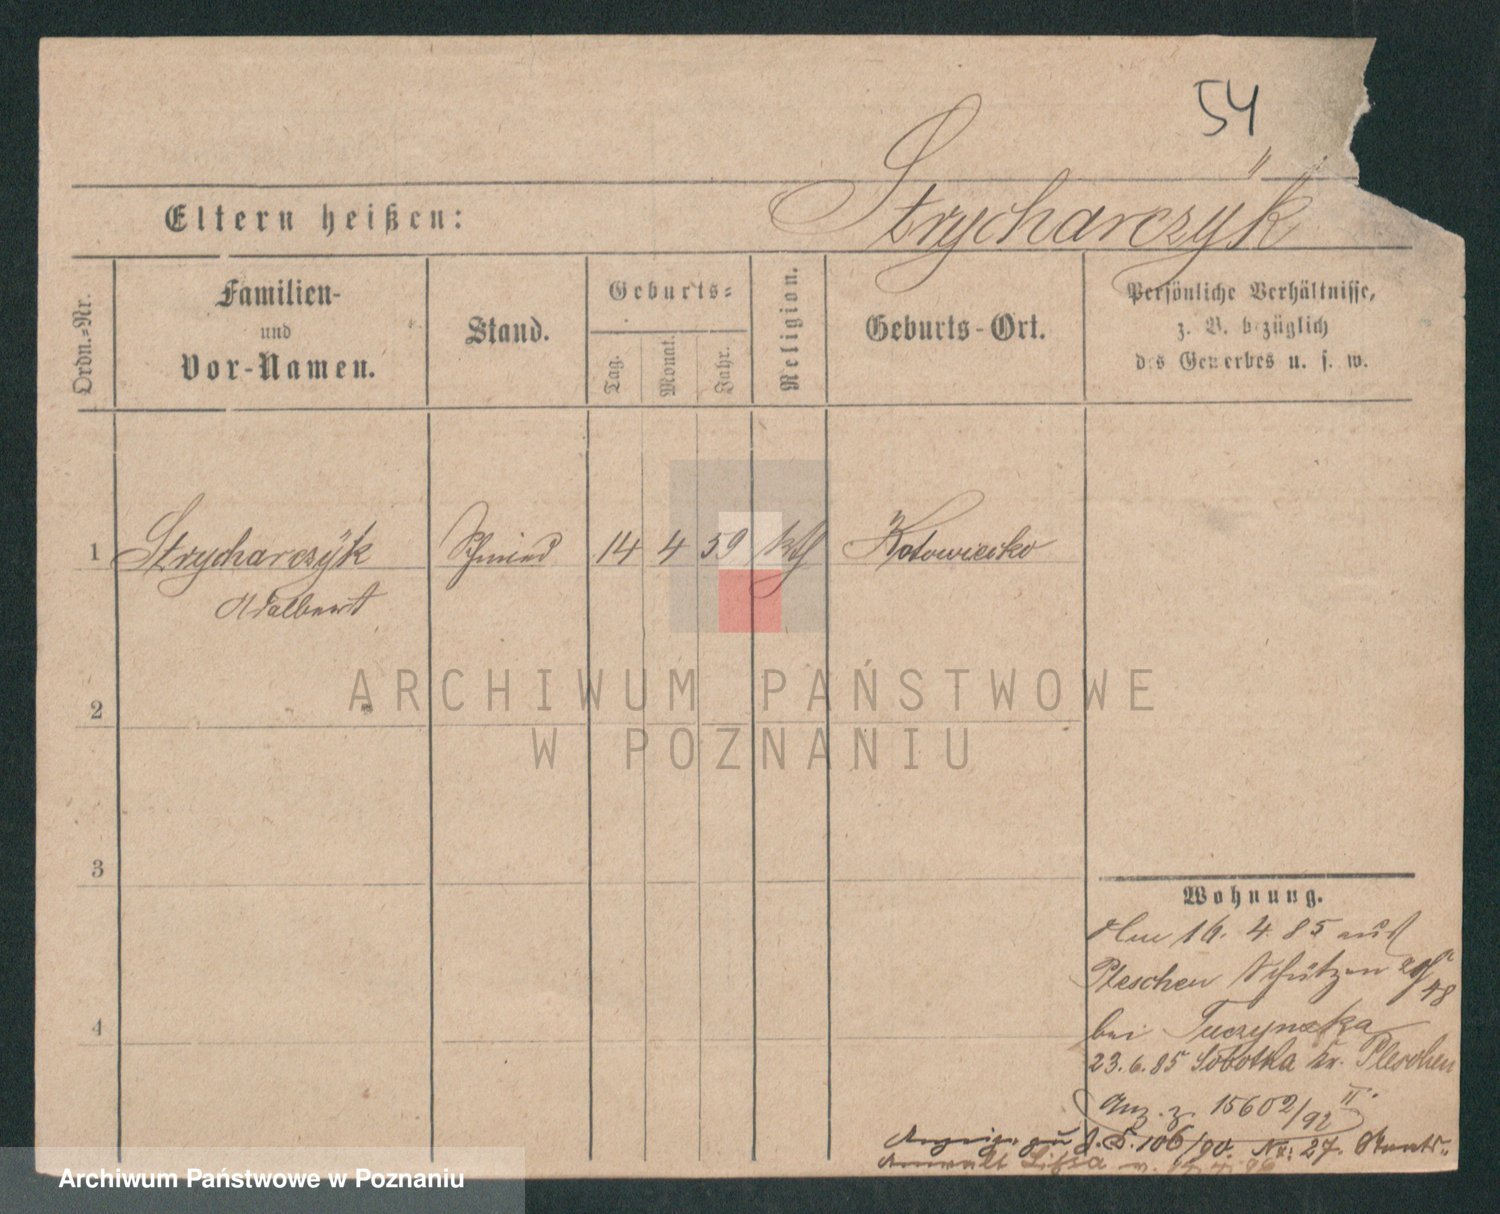 54
Strycharczÿk
Eltern heißen:
Ordn.-Nr.
Familien-
und
Vor-Namen.
Stand.
Geburts-
Tag.
Monat.
Jahr.
Religion.
Geburts-Ort.
Persönliche Verhältnisse,
z. B. bezüglich
des Gewerbes u. s. w.
1 Strycharczÿk Schmied 14 4 59 kth Kotowiecko
Adalbert
2
3
4
ARCHIWUM PAŃSTWOWE
W POZNANIU
Wohnung.
16. 4. 85 aus
Pleschen Schützen
bei Tuczynska
23. 6. 85 Sobotka Kr. Pleschen
Anz. z. 15602/92 II.
J. 106/90. No: 27. Staats-
anwalt Lissa
Archiwum Państwowe w Poznaniu